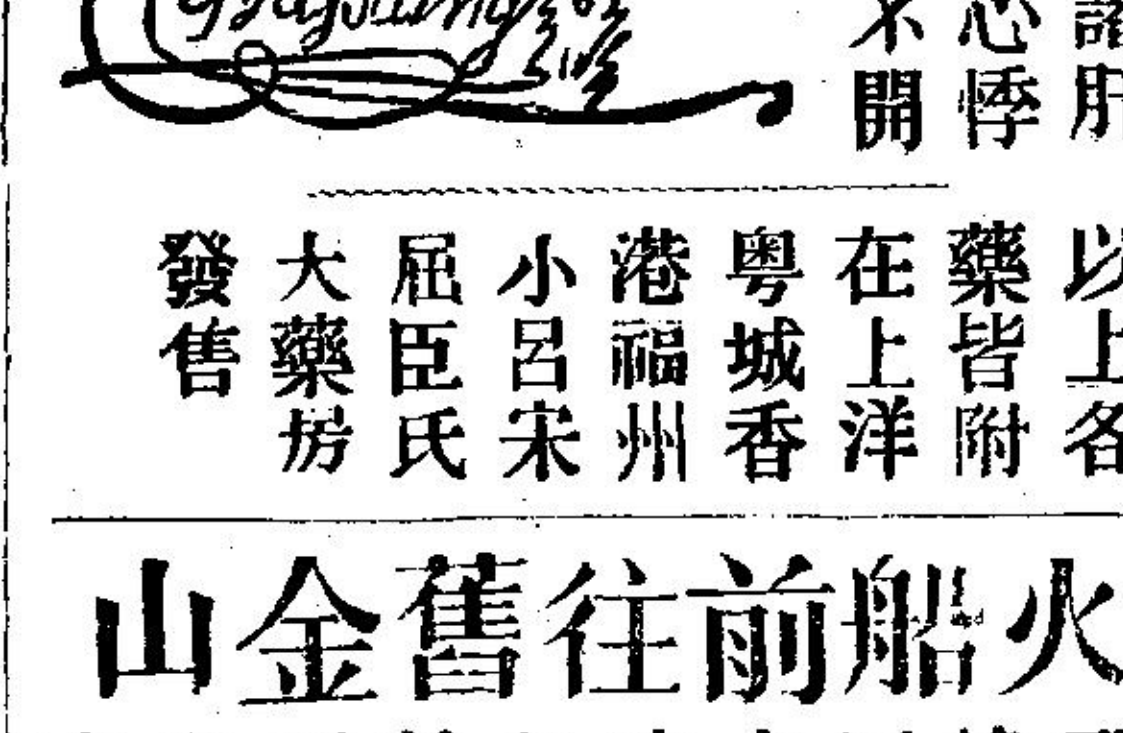 肝
心悸
不開
以上各
藥皆附
在上洋
粤城香
港福州
小呂宋
屈臣氏
大藥房
發售
火船前往舊金山